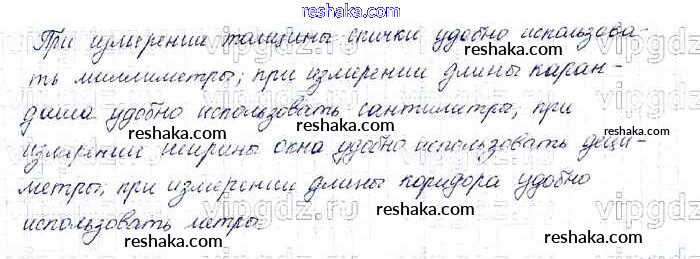 reshaka.com
При измерении толщины спички удобно использова-
ть миллиметры; при измерении длины каран-
даша удобно использовать сантиметры; при
измерении ширины окна удобно использовать деци-
метры; при измерении длины коридора удобно
использовать метры.
reshaka.com
reshaka.com
reshaka.com
reshaka.com
reshaka.com
reshaka.com
reshaka.com
reshaka.com
reshaka.com